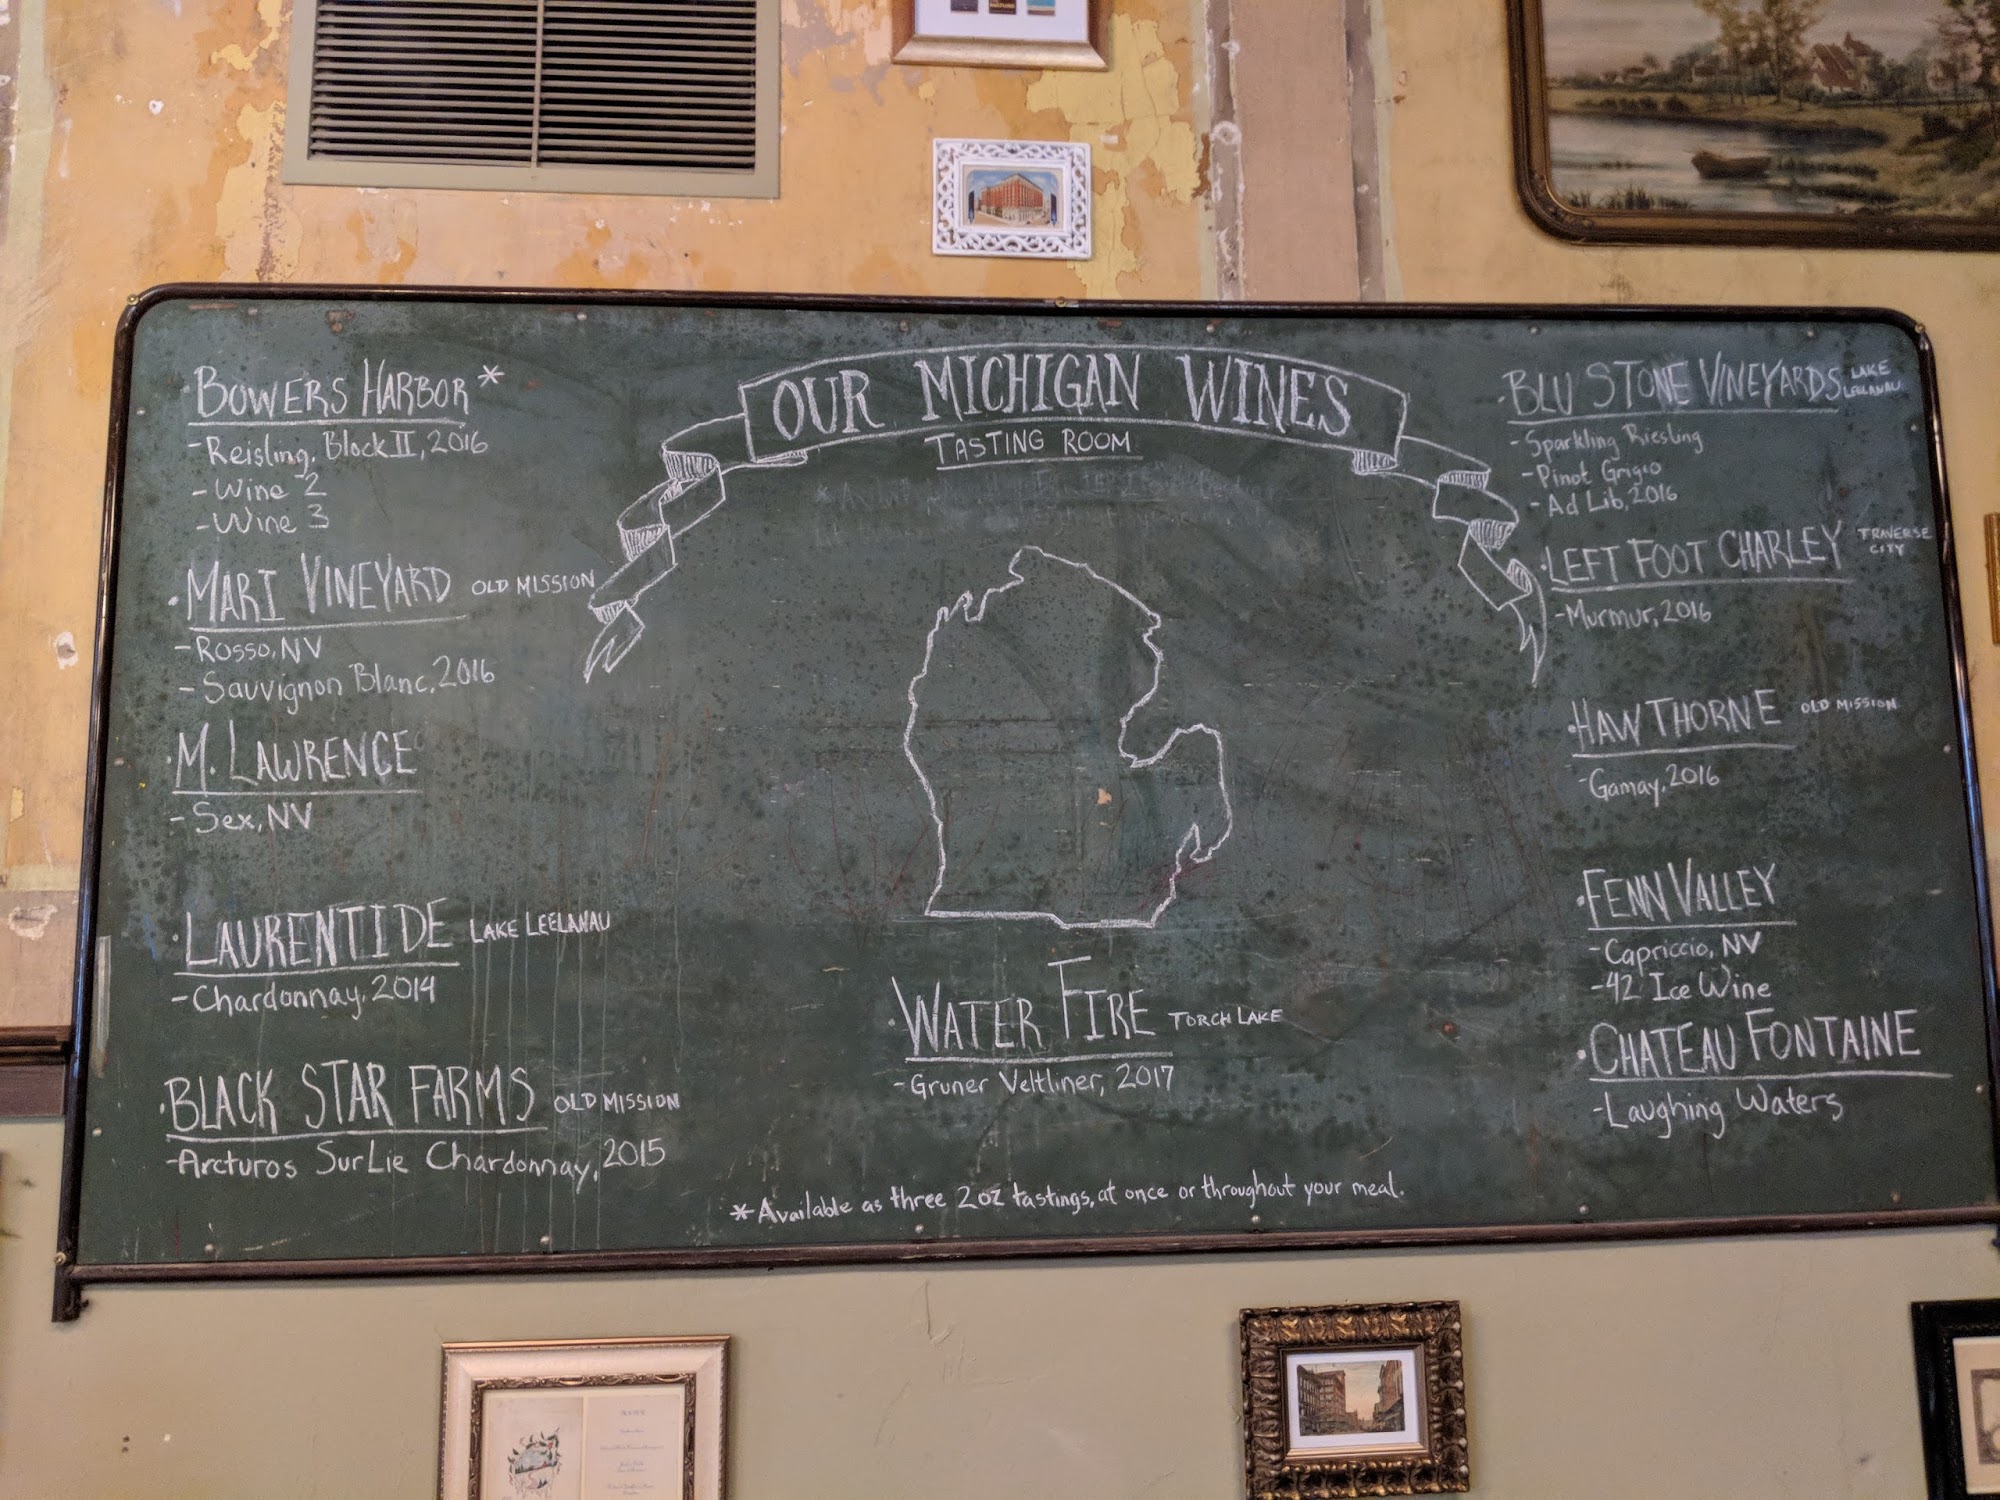 OUR MICHIGAN WINES
TASTING ROOM
BOWERS HARBOR*
-Reisling, Block II, 2016
-Wine 2
-Wine 3
·MARI VINEYARD OLD MISSION
-Rosso, NV
-Sauvignon Blanc, 2016
·M. LAWRENCE
-Sex, NV
·LAURENTIDE LAKE LEELANAU
-Chardonnay, 2014
·BLACK STAR FARMS OLD MISSION
-Arcturos Sur Lie Chardonnay, 2015
·WATER FIRE TORCH LAKE
-Gruner Veltliner, 2017
·BLU STONE VINEYARDS LAKE LEELANAU
-Sparkling Riesling
-Pinot Grigio
-Ad Lib, 2016
·LEFT FOOT CHARLEY TRAVERSE CITY
-Murmur, 2016
·HAWTHORNE OLD MISSION
-Gamay, 2016
·FENN VALLEY
-Capriccio, NV
-42 Ice Wine
·CHATEAU FONTAINE
-Laughing Waters
*Available as three 2oz tastings, at once or throughout your meal.